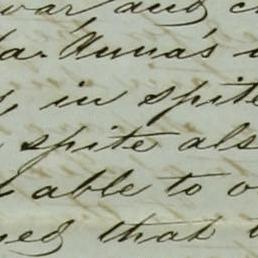 war and
Anna's
in spite
spite als
able to
that